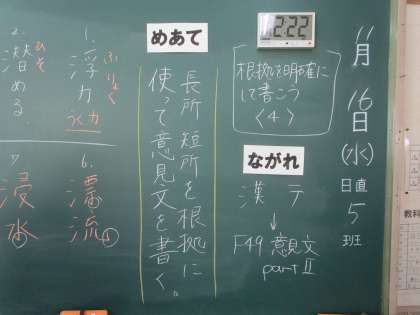 11月16日(水)
日直 5班
2:22
根拠を明確に
して書こう
〈4〉
ながれ
漢テ
↓
F49 意見文
part Ⅱ
めあて
長所 短所を根拠に
使って意見文を書く。
1. 浮力
ふりょく
うく力
2. 潜める
ひそ
6. 漂流
7. 浸水